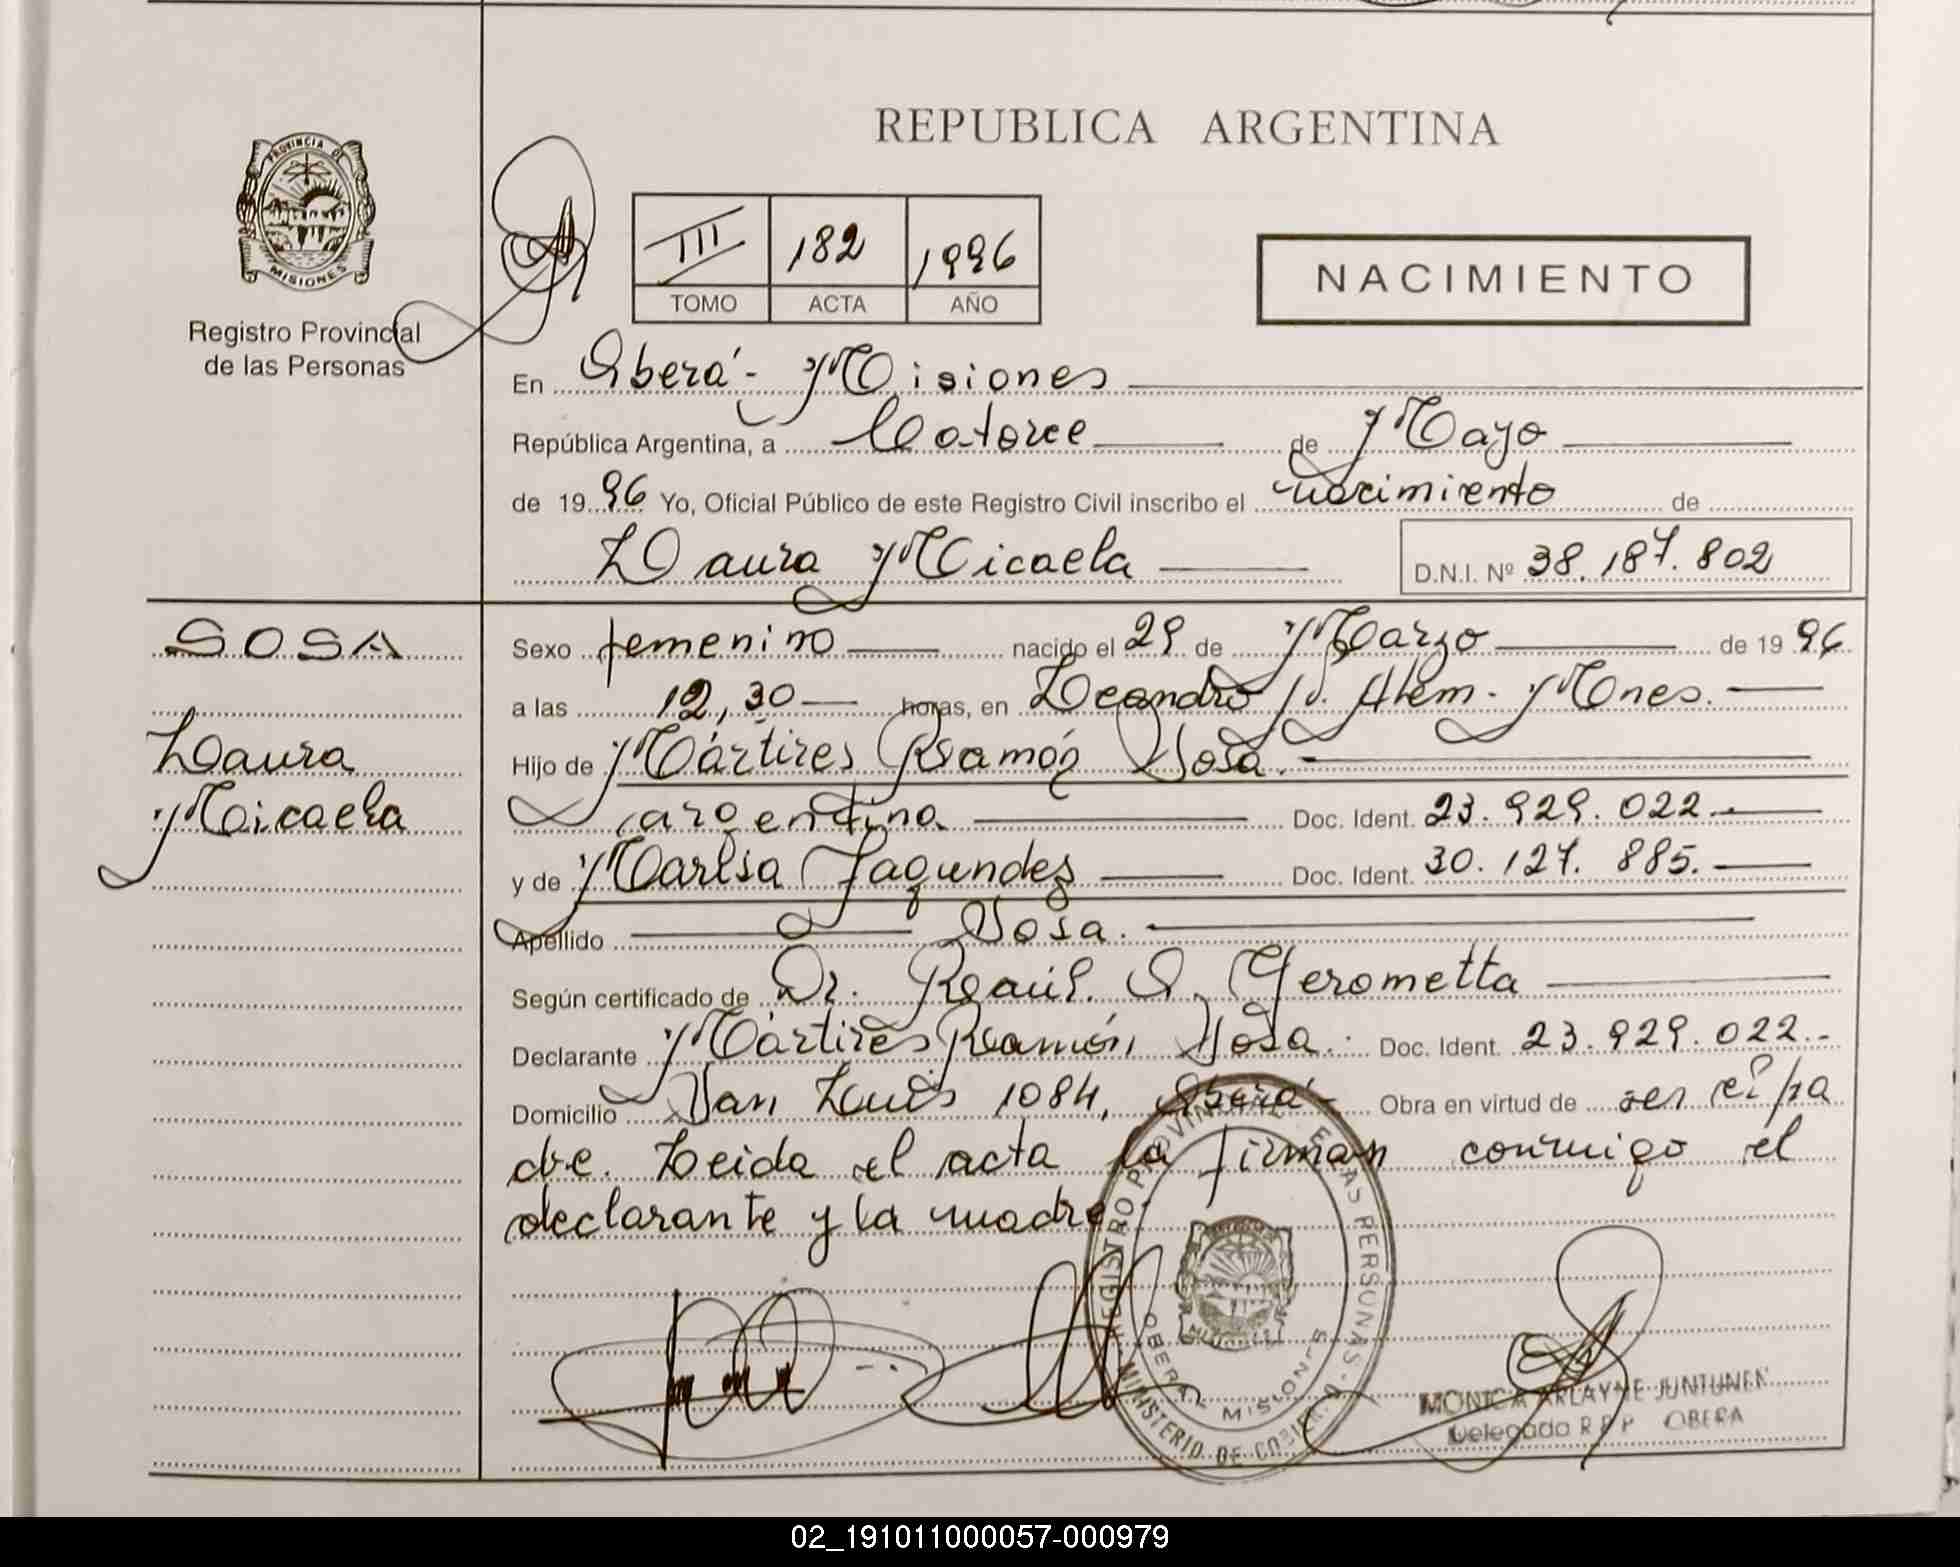 REPUBLICA ARGENTINA
PROVINCIA DE MISIONES
Registro Provincial
de las Personas
III 182 1996
TOMO ACTA AÑO
NACIMIENTO
En Oberá - Misiones
República Argentina, a Catorce de Mayo
de 1996 Yo, Oficial Público de este Registro Civil inscribo el nacimiento de
Laura Micaela D.N.I. Nº 38.187.802
SOSA
Laura
Micaela
Sexo femenino nacido el 29 de Marzo de 1996
a las 12,30 horas, en Leandro N. Alem - Mnes.
Hijo de Mártires Ramón Sosa.
argentina Doc. Ident. 23.929.022.-
y de Marisa Fagundez Doc. Ident. 30.127.885.-
Apellido Sosa.
Según certificado de Dr. Raúl O. Gerometta
Declarante Mártires Ramón Sosa.- Doc. Ident. 23.929.022.-
Domicilio San Luis 1084, Oberá - Obra en virtud de ser el pa
dre. Leida el acta la firman conmigo el
declarante y la madre.
REGISTRO PROVINCIAL DE LAS PERSONAS
MINISTERIO DE GOBIERNO
OBERA MISIONES
MONICA ARLAYNE JUNTUNEN
Delegada R P P OBERA
02_191011000057-000979